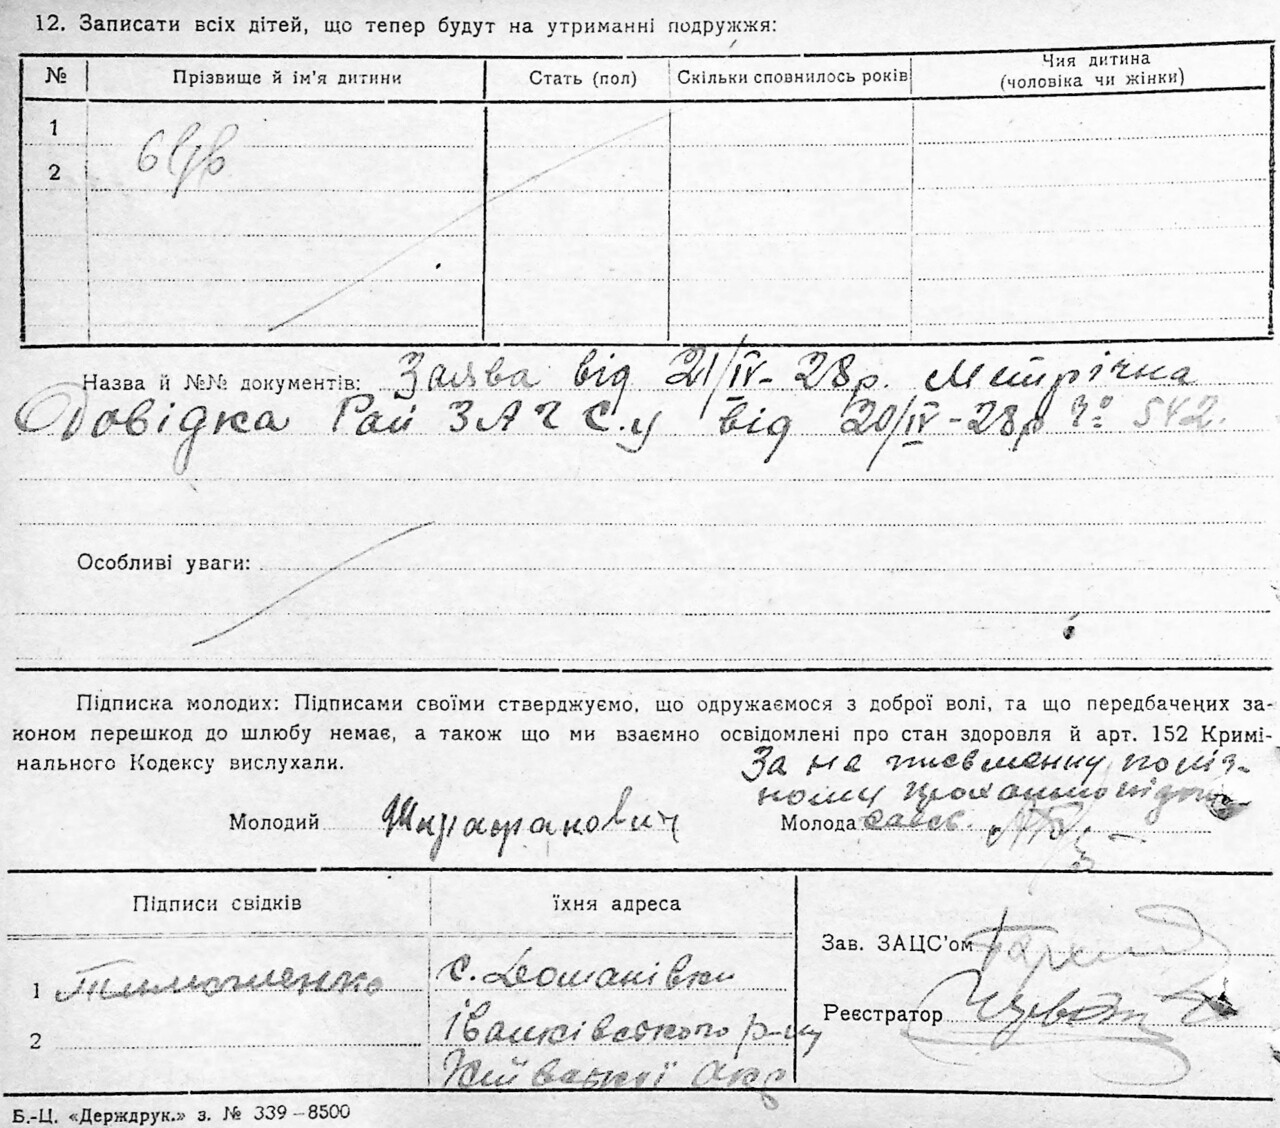 12. Записати всіх дітей, що тепер будут на утриманні подружжя:
№ Прізвище й ім'я дитини Стать (пол) Скільки сповнилось років Чия дитина (чоловіка чи жінки)
1
2
Назва й №№ документів: Заява від 21/IV-28р. Метрічна
Довідка Рай ЗАГС.у від 20/IV-28р № 542.
Особливі уваги:
Підписка молодих: Підписами своїми стверджуємо, що одружаємося з доброї волі, та що передбачених за-
коном перешкод до шлюбу немає, а також що ми взаємно освідомлені про стан здоров'я й арт. 152 Кримі-
нального Кодексу вислухали.
За не письменну
Молодий Молода
Підписи свідків їхня адреса
Зав. ЗАЦС'ом
1 Тимошенко с.
Реєстратор
2 Іванківського р-ну
Київської окр
Б.-Ц. «Держдрук.» з. № 339–8500